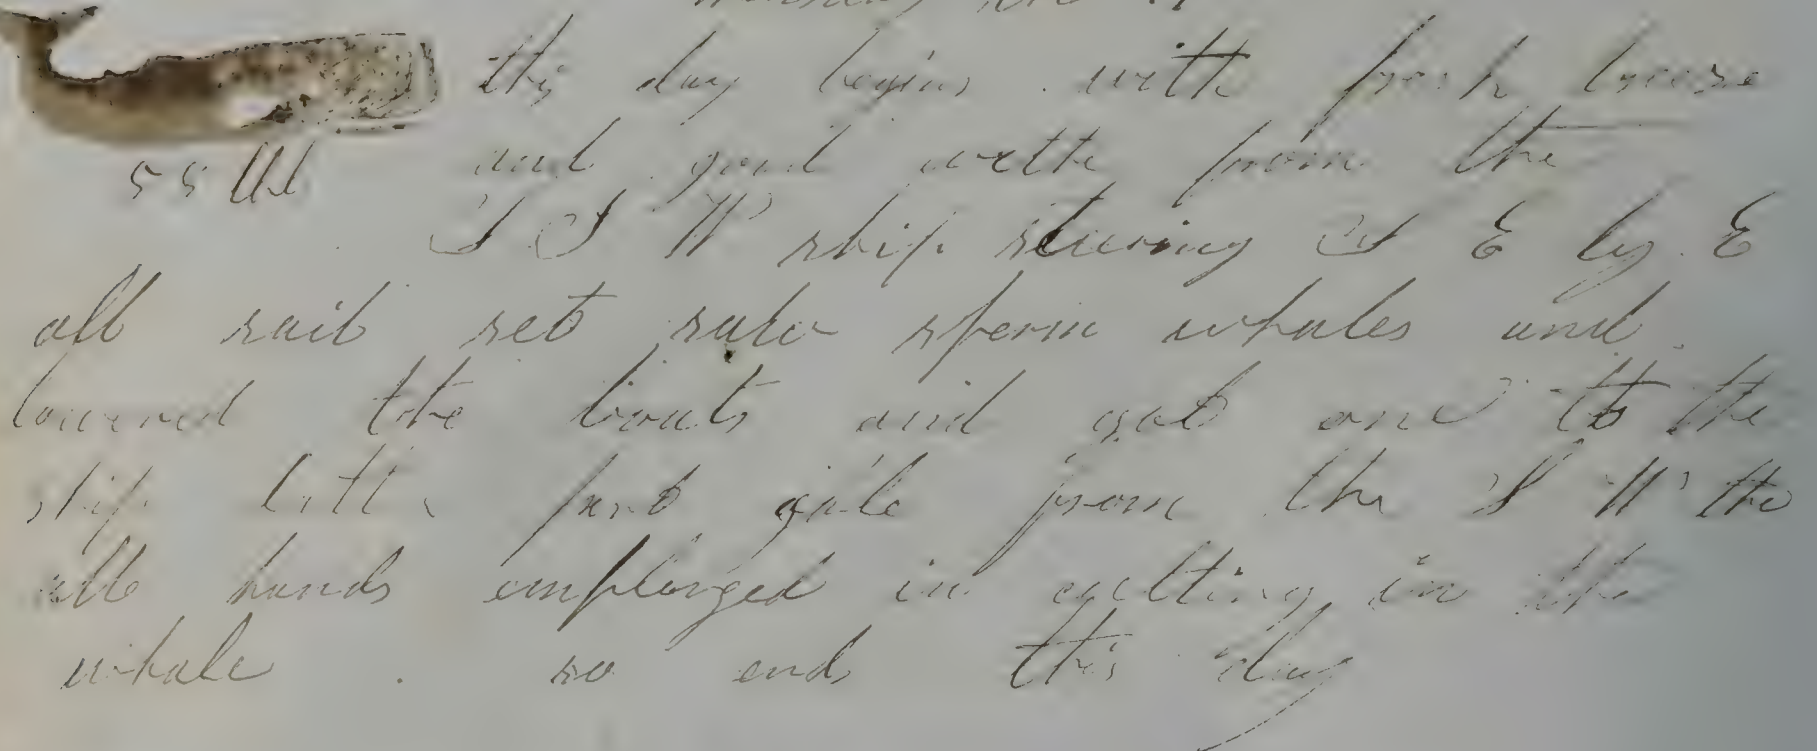 this day begins with fresh breese
and good wethe from the
55 bbl
S S W ship steering S E by E
all sail set saw sperm whales and
lowered the boats and got one to the
ship latter part gale from the S W the
alle hands employed in cutting in the
whale . so ends this day